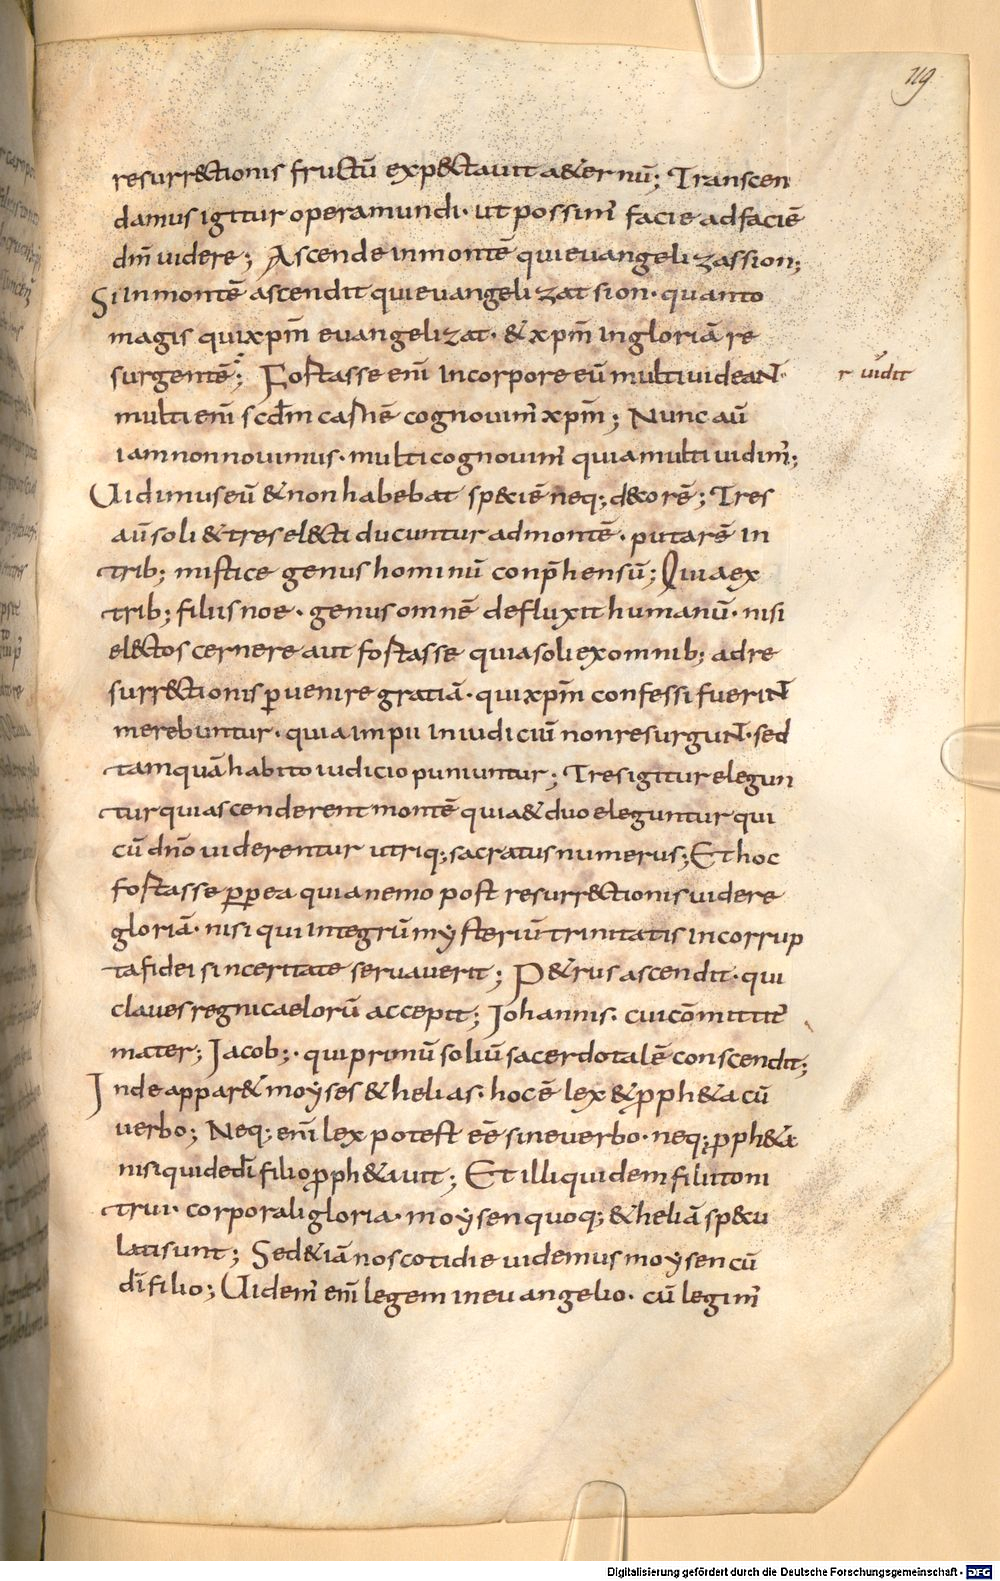 119
resurr&ctionis fructū exp&ctauit a&ernū; Transcen
damus igitur opera mundi· ut possim̄ facie ad faciē
dm̄ uidere; Ascende in montē qui euangelizas sion;
Si in montē ascendit qui euangelizat sion· quanto
magis qui xpm̄ euangelizat· & xpm̄ in gloriā re
surgentē; Fortasse eni̅ in corpore eū multi uideant·
r uidit
multi eni̅ scdm̄ carnē cognouim̄ xpm̄; Nunc aū
iam non nouimus· multi cognouim̄ quia multi uidim̄;
Uidimus eū & non habebat sp&ciē neq; d&corē; Tres
aū soli & tres el&cti ducuntur ad montē· putarē in
trib; mistice genus hominū conp̄hensū; Quia ex
trib; filiis noe· genus omnē defluxit humanū· nisi
el&ctos cernere aut fortasse quia soli ex omnib; ad re
surr&ctionis ꝑuenire gratiā· qui xpm̄ confessi fuerint
merebuntur· quia impii in iudiciū non resurgunt· sed
tamquā habito iudicio puniuntur; Tres igitur elegun
tur qui ascenderent montē quia & duo eleguntur qui
cū dn̄o uiderentur utriq; sacratus numerus; Et hoc
fortasse ꝓpea quia nemo post resurr&ctionis uidere
gloriā· nisi qui integrū mysteriū trinitatis incorrup
ta fidei sinceritate seruauerit; P&rus ascendit· qui
claues regni caelorū accepit; Johannis· cui cōmittit̄
mater; Jacob;· qui primū soliū sacerdotalē conscendit;
Inde appar& moyses & helias· hoc ē lex & ꝓph&a cū
uerbo; Neq; eni̅ lex potest eē sine uerbo· neq; ꝓph&a
nisi qui de dī filio ꝓph&auit; Et illi quidem filii toni
trui· corporali gloria· moysen quoq; & heliā sp&cu
lati sunt; Sed &iā nos cotidie uidemus moysen cū
dī filio; Uidem̄ eni̅ legem in euangelio· cū legim̄
Digitalisierung gefördert durch die Deutsche Forschungsgemeinschaft - DFG